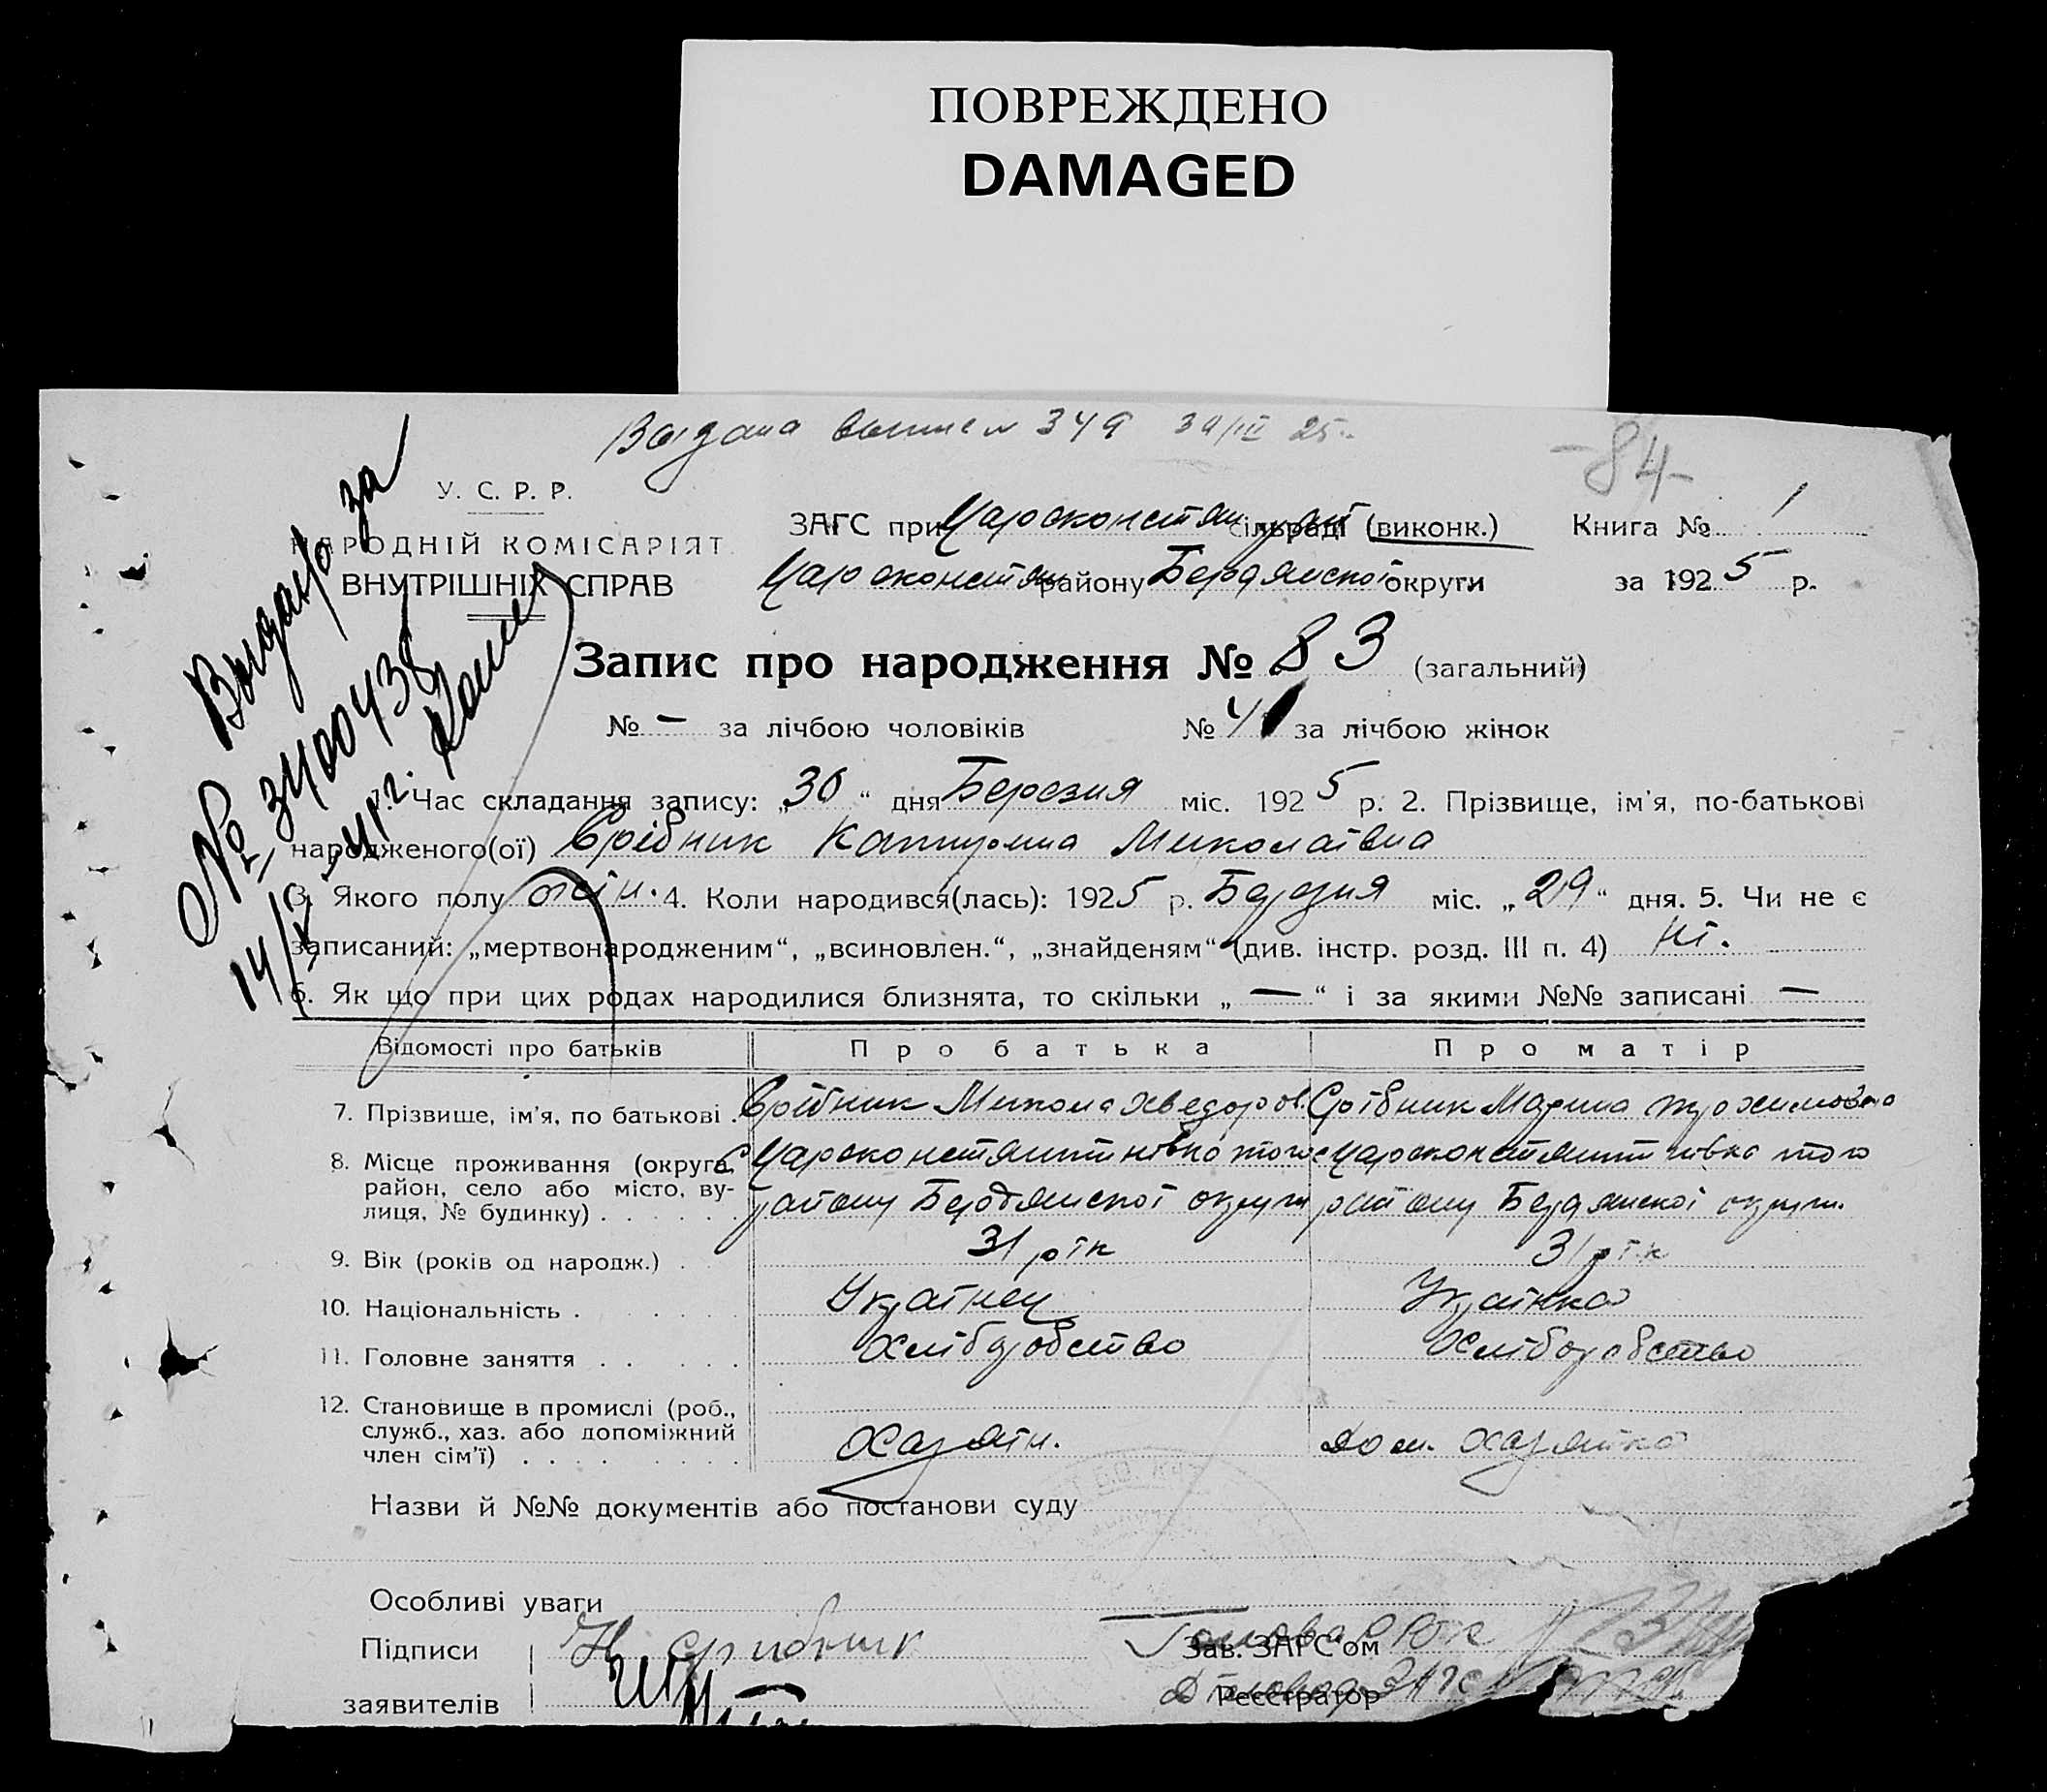 ПОВРЕЖДЕНО
DAMAGED
349 30/III 25
-84-
У. С. Р. Р.
НАРОДНІЙ КОМІСАРІЯТ
ВНУТРІШНІХ СПРАВ
Выдано за
№ 3400438
14/X 41 г.
ЗАГС при Царсконстян сільраді (виконк.) Книга № 1
Царсконстян району Бердянської округи за 1925 р.
Запис про народження № 83 (загальний)
№ — за лічбою чоловіків № 41 за лічбою жінок
1. Час складання запису: „30“ дня Березня міс. 1925 р. 2. Прізвище, ім'я, по-батькові
народженого(ої) Срібник Катерина Миколаївна
3. Якого полу жін. 4. Коли народився(лась): 1925 р. Березня міс. „29“ дня. 5. Чи не є
записаний: „мертвонародженим“, „всиновлен.“, „знайденям“ (див. інстр. розд. III п. 4) ні.
6. Як що при цих родах народилися близнята, то скільки „—“ і за якими №№ записані —
Відомості про батьків Про батька Про матір
7. Прізвище, ім'я, по батькові Срібник Микола Хведоров. Срібник Марина
8. Місце проживання (округа, район, село або місто, вулиця, № будинку)
с Царсконстянтинівка того району Бердянської округи
с Царсконстянтинівка того району Бердянської округи.
9. Вік (років од народж.) 31 рік 31 рік
10. Національність Українец Українка
11. Головне заняття Хліборобство Хліборобство
12. Становище в промислі (роб., служб., хаз. або допоміжний член сім'ї) Хазяїн. дом. хазяйка
Назви й №№ документів або постанови суду
Особливі уваги
Підписи Н Срибник Зав. ЗАГС'ом
заявителів Реєстратор